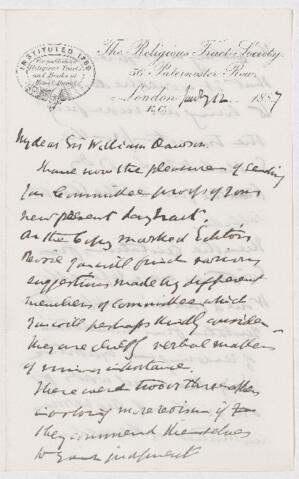 INSTITUTED 1799
The Religious Tract Society
56, Paternoster Row,
London July 12 1887
E.C.
My dear Sir William Dawson
I have now the pleasure of sending
you Committee proofs of your
new present day Tract.
On the Copy marked Editor's
Revise you will find various
suggestions made by different
members of Committee which
you will perhaps kindly consider
they are chiefly verbal matters
of minor importance.
There were two or three others
involving more revision if
they commend themselves
to your judgement